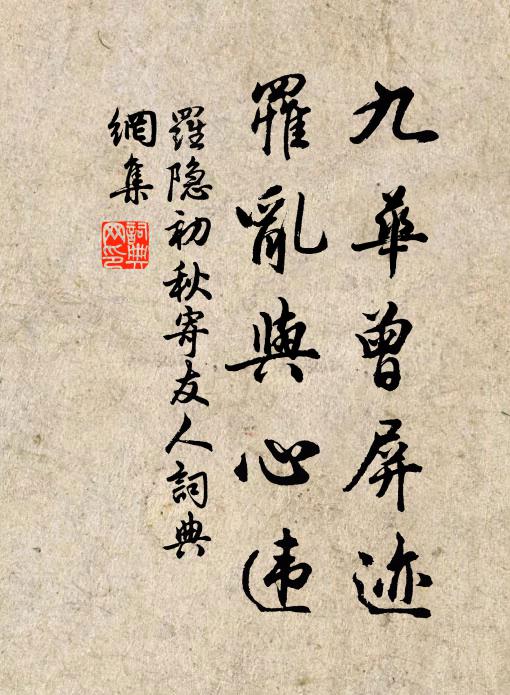 九華曾屏迹
罹亂與心违
羅隐初秋寄友人詞典
網集
詞典
网印